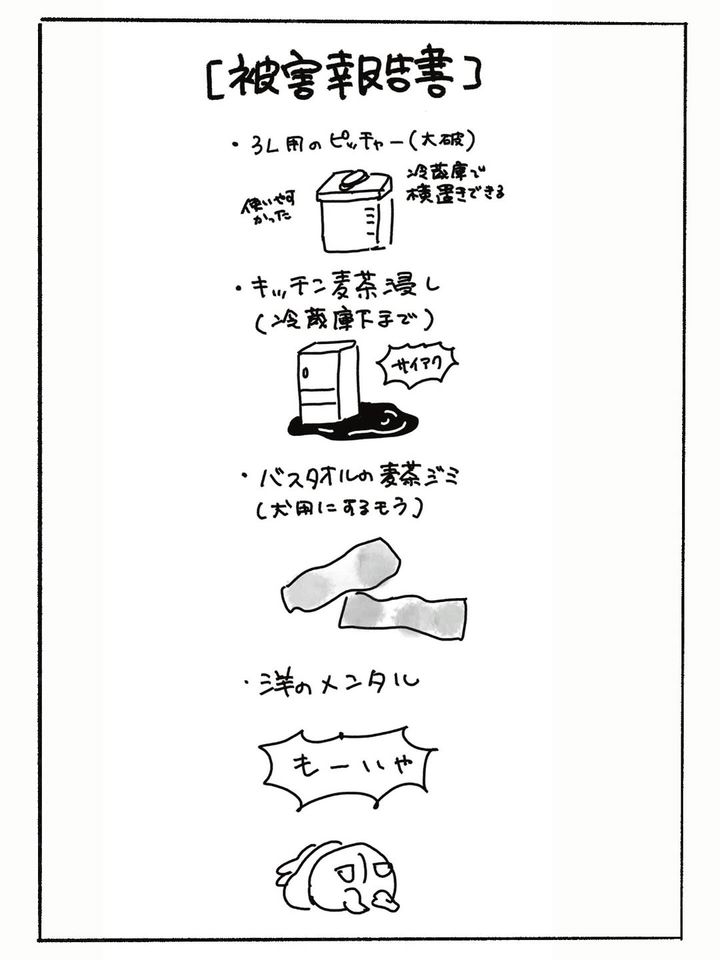 [被害報告書]
・3L用のピッチャー(大破)
使いやす
かった
冷蔵庫で
横置きできる
・キッチン麦茶浸し
(冷蔵庫下まで)
サイアク
・バスタオルの麦茶ジミ
(犬用にするもう)
・洋のメンタル
もーいいや